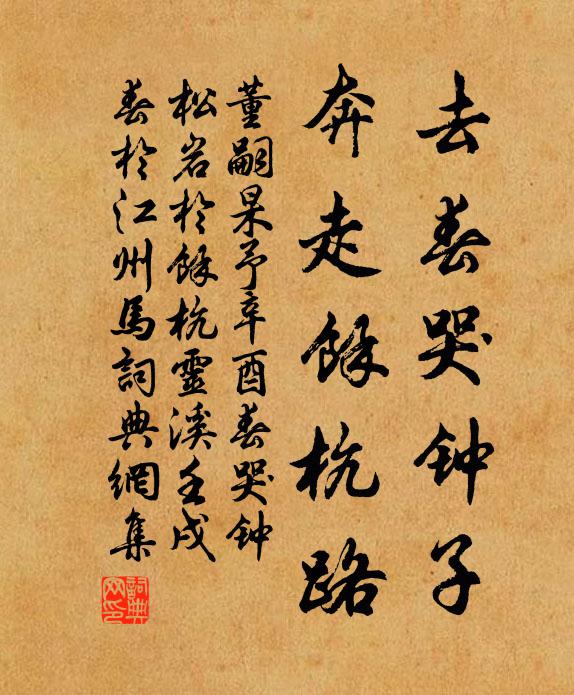 去春哭钟子
奔走餘杭路
董嗣杲予辛酉春哭钟
松岩於餘杭靈溪壬戌
春於江州馬詞典網集
詞典
网印